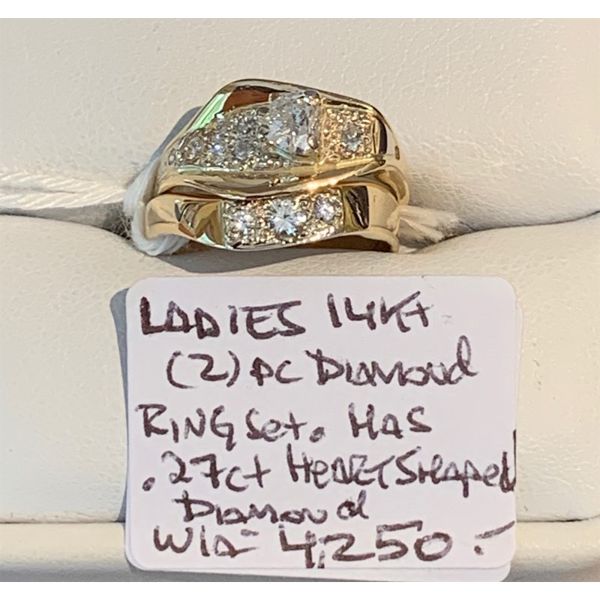 LADIES 14Kt
(2) PC DIAMOND
RING Set. HAS
.27ct HEARTSHAPED
DIAMOND
W/A- 4,250.-